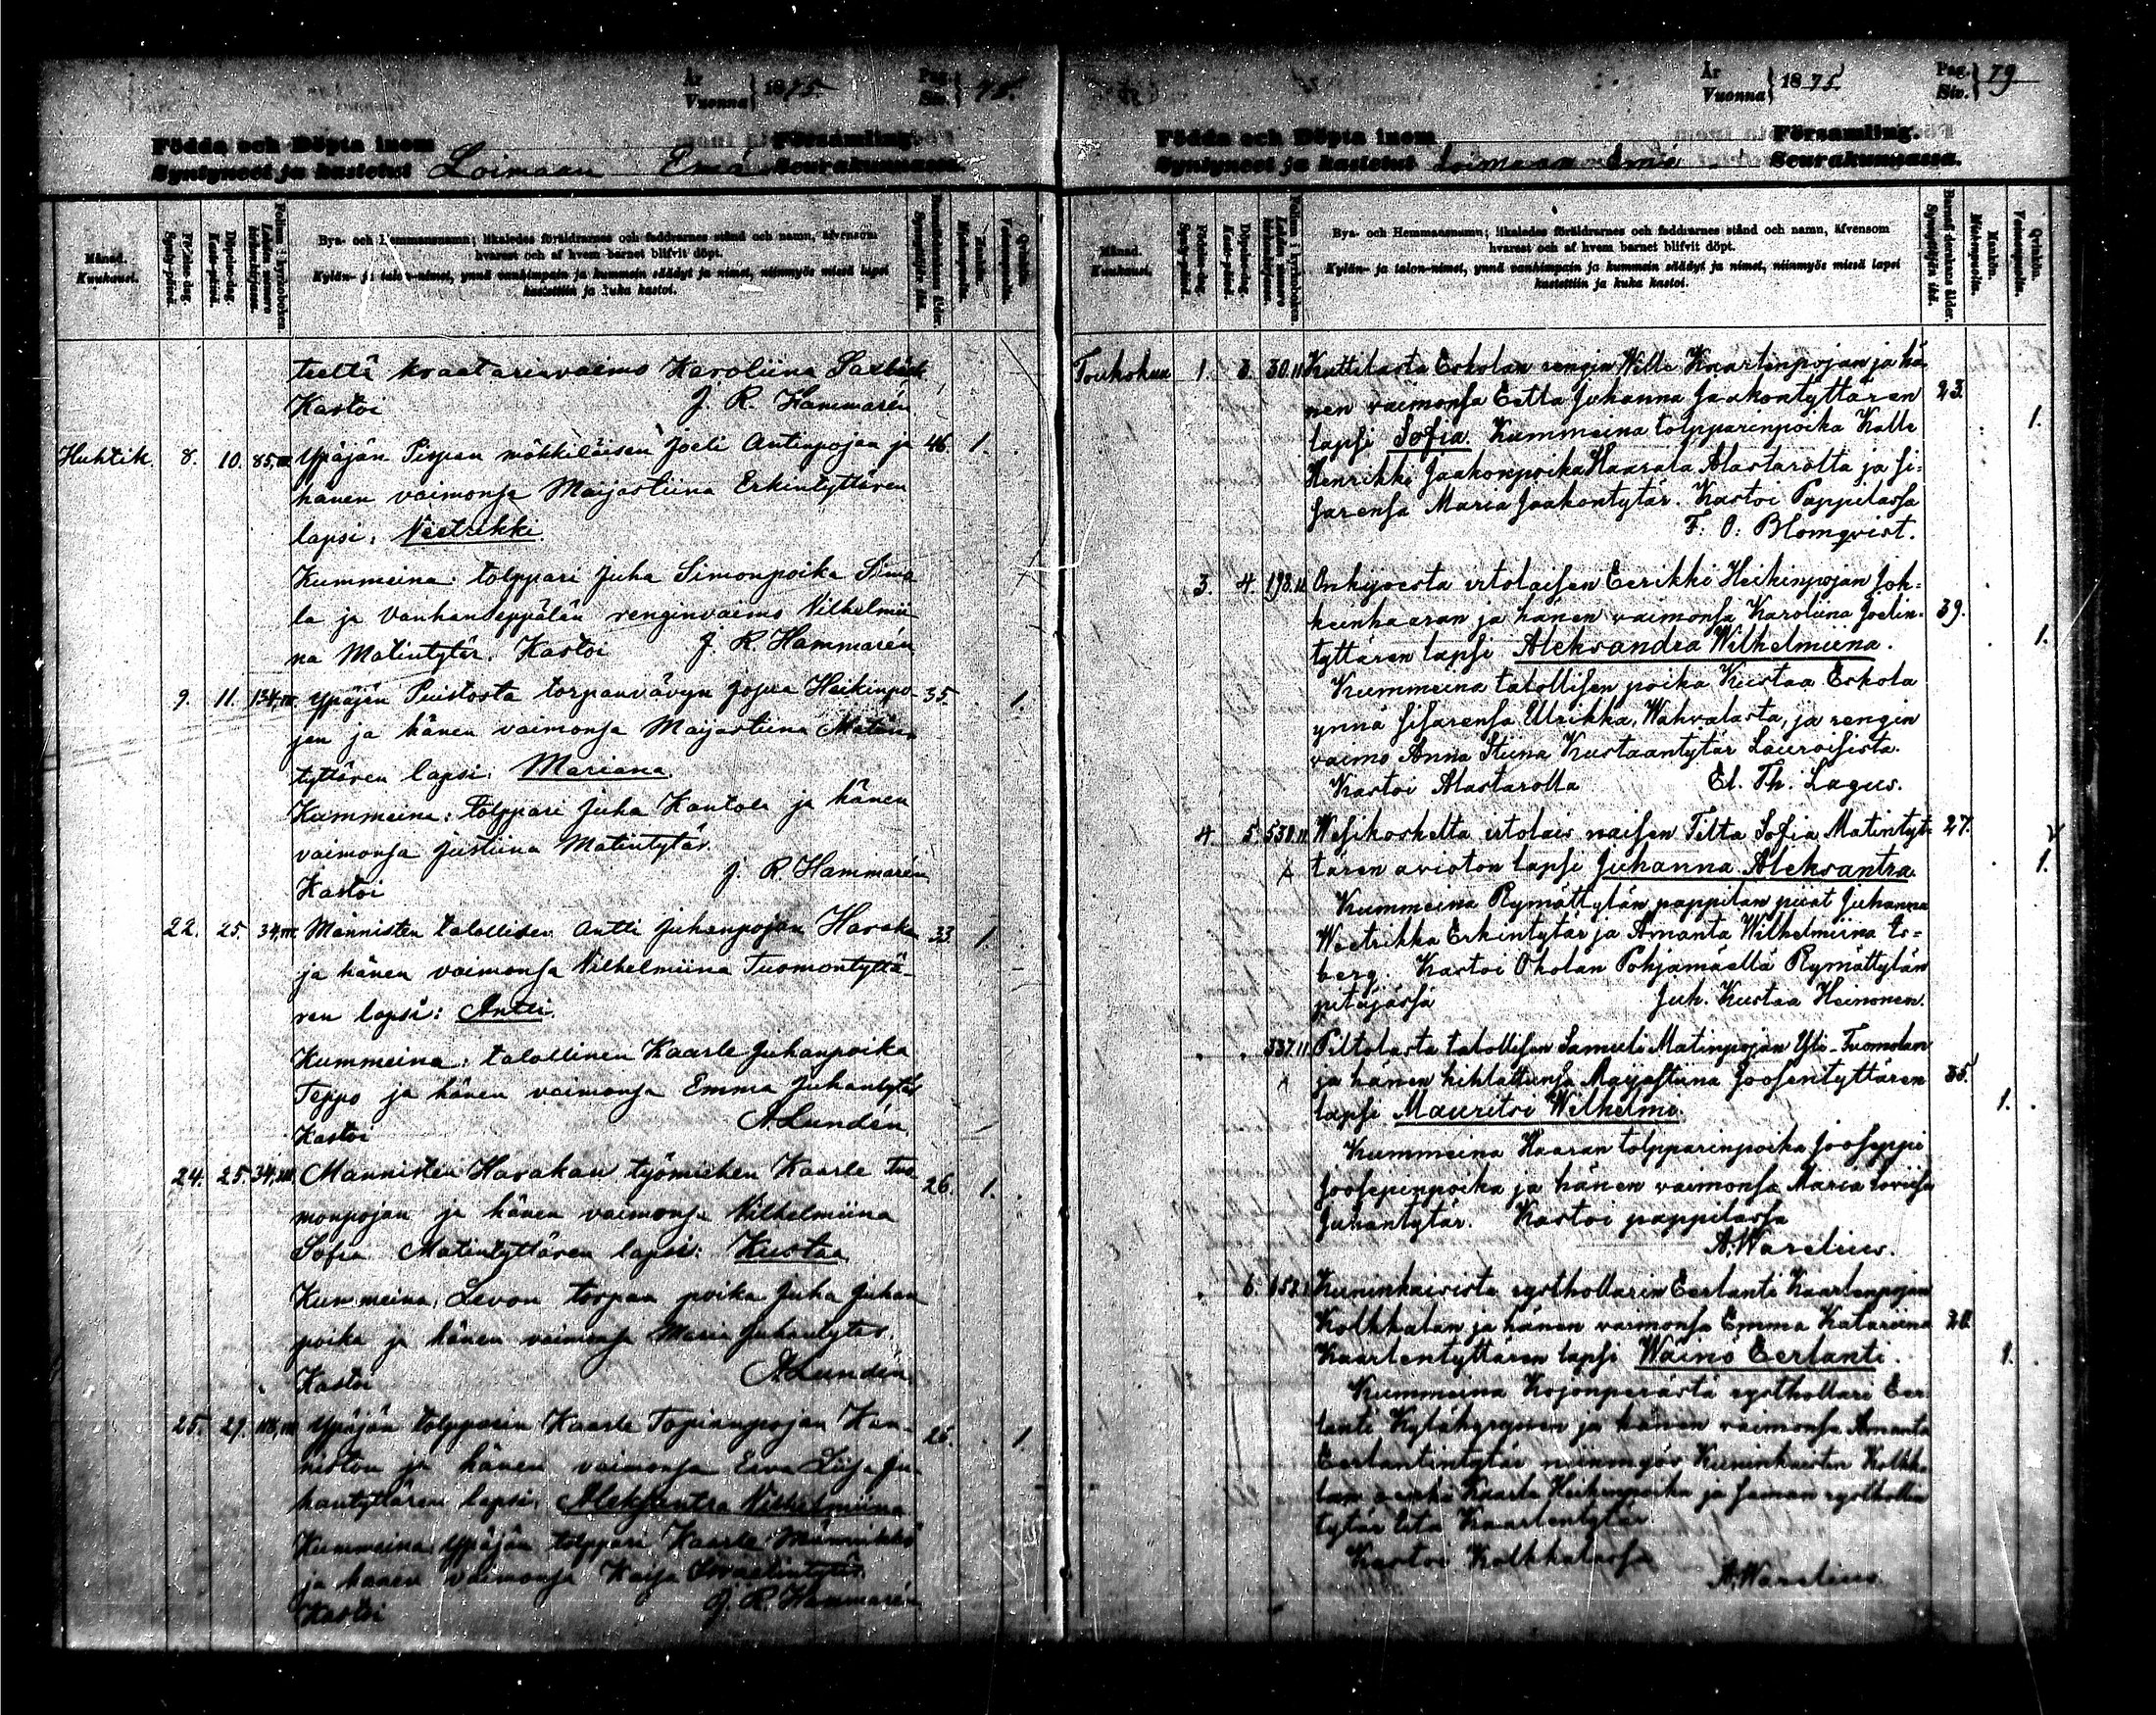 År
Vuonna } 1875.
Pag.
Siv. } 78.
Födda och Döpta inom Församling.
Syntyneet ja kastetut Loimaan Emä Seurakunnassa.
Månad.
Kuukausi.
Födelse-dag.
Synty-päivä.
Döpelse-dag.
Kaste-päivä.
Bya- och Hemmansnamn; likaledes föräldrarnes och faddrarnes stånd och namn, äfvensom
hvarest och af hvem barnet blifvit döpt.
Kylän- ja talon-nimet, ynnä vanhimpain ja kummein säädyt ja nimet, niinmyös missä lapsi
kastettiin ja kuka kastoi.
Mankön.
Miehenpuolia.
Qvinkön.
Vaimonpuolia.
teeltä kraatarinvaimo Karoliina Saxbäck.
Kastoi J. R. Hammarén
Huhtik. 8. 10. 85,III. Ypäjän Pispan mökkiläisen Joeli Antinpojan ja 46. 1.
hänen vaimonsa Maijastiina Erkintyttären
lapsi: Veetrikki.
Kummeina: tolppari Juha Simonpoika Sima
la ja Vanhanseppälän renginvaimo Vilhelmii
na Matintytär. Kastoi J. R. Hammarén
9. 11. 134,III. Ypäjän Puistosta torpanvävyn Josua Heikinpo- 35. 1.
jan ja hänen vaimonsa Maijastiina Matin
tyttären lapsi: Mariana
Kummeina: tolppari Juha Kantola ja hänen
vaimonsa Justiina Matintytär.
Kastoi J. R. Hammarén
22. 25. 34,III. Männisten talollisen Antti Juhanpojan Havaka 33. 1.
ja hänen vaimonsa Vilhelmiina Tuomontyttä-
ren lapsi: Antti.
Kummeina: talollinen Kaarle Juhanpoika
Teppo ja hänen vaimonsa Emma Juhantytär
Kastoi A. Lundén.
24. 25. 34,III. Männisten Havakan työmiehen Kaarle Tuo- 26. 1.
monpojan ja hänen vaimonsa Vilhelmiina
Sofia Matintyttären lapsi: Kustaa
Kummeina: Levon torpan poika Juha Juhan
poika ja hänen vaimonsa Maria Juhantytär.
Kastoi A. Lundén.
25. 29. 118,III Ypäjän tolpparin Kaarle Topianpojan Kan- 26. 1.
niston ja hänen vaimonsa Eeva Liisa Ju-
hantyttären lapsi: Aleksantra Vilhelmiina
Kummeina: Ypäjän tolppari Kaarle Männikkö
ja hänen vaimonsa Kaisa Israelintytär
Kastoi J. R. Hammarén
År
Vuonna } 1875.
Pag.
Siv. } 79
Födda och Döpta inom Församling.
Syntyneet ja kastetut Loimaan Emä Seurakunnassa.
Månad.
Kuukausi.
Födelse-dag.
Synty-päivä.
Döpelse-dag.
Kaste-päivä.
Bya- och Hemmansnamn; likaledes föräldrarnes och faddrarnes stånd och namn, äfvensom
hvarest och af hvem barnet blifvit döpt.
Kylän- ja talon-nimet, ynnä vanhimpain ja kummein säädyt ja nimet, niinmyös missä lapsi
kastettiin ja kuka kastoi.
Barnsföderskans ålder.
Synnyttäjän ikä.
Mankön.
Miehenpuolia.
Qvinkön.
Vaimonpuolia.
Toukokuu 1. 3. 30.II Kuttilasta Eskolan rengin Wille Kaarlenpojan ja hä
nen vaimonsa Eetla Juhanna Jaakontyttären 23.
lapsi Sofia. Kummeina tolpparinpoika Kalle 1.
Henrikki Jaakonpoika Haarala Alastarolta ja si-
sarensa Maria Jaakontytär. Kastoi Pappilassa
F. O. Blomqvist.
3. 4. 198.II Onkijoesta irtolaisen Eerikki Heikinpojan Jok-
keenhaaran ja hänen vaimonsa Karoliina Joelin- 39.
tyttären lapsi Aleksandra Wilhelmiina. 1.
Kummeina talollisen poika Kustaa Eskola
ynnä sisarensa Ulrikka, Wahvalasta, ja rengin
vaimo Anna Stiina Kustaantytär Lauroisista.
Kastoi Alastarolla El. Th. Lagus.
4. 5. 538.II Wesikoskelta irtolais naisen Tilta Sofia Matintyt- 27.
tären avioton lapsi Juhanna Aleksantra. 1.
Kummeina Rymättylän pappilan piiat Juhanna
Weetrikka Erkintytär ja Amanta Wilhelmiina Es-
berg. Kastoi Okolan Pohjamäellä Rymättylän
pitäjässä Juh. Kustaa Heinonen.
537.II Piltolasta talollisen Samuli Matinpojan Yli-Tuomolan
ja hänen kihlattunsa Maijastiina Joosentyttären 35.
lapsi Mauritsi Wilhelmi. 1.
Kummeina Haaran tolpparinpoika Jooseppi
Joosepinpoika ja hänen vaimonsa Maria Loviisa
Juhantytär. Kastoi pappilassa
A. Warelius.
6. 158.I Kuninkaisista rysthollarin Eerlanti Kaarlenpojan
Kolkkalan ja hänen vaimonsa Emma Katariina 20.
Kaarlentyttären lapsi Waino Eerlanti. 1.
Kummeina Kojonperästä rysthollari Eer
lanti Kylähyrynen ja hänen vaimonsa Amanta
Eerlantintytär niinmyös Kuninkaisten Kolkka
lan Kaarle Heikinpoika ja saman rysthollin
tytär Eeta Kaarlentytär.
Kastoi Kolkkalassa
A. Warelius.